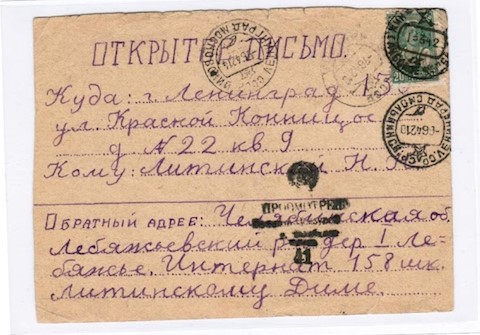 ОТКРЫТ ПИСЬМО.
Куда: г. Ленинград
ул. Красной Конницы
д № 22 кв. 9
Кому: Литинской Н.
ПРОСМОТРЕНО
41
Обратный адрес: Челябинская об.
Лебяжьевский р. дер. 1 Ле-
бяжье. Интернат 158 шк.
Литинскому Диме.